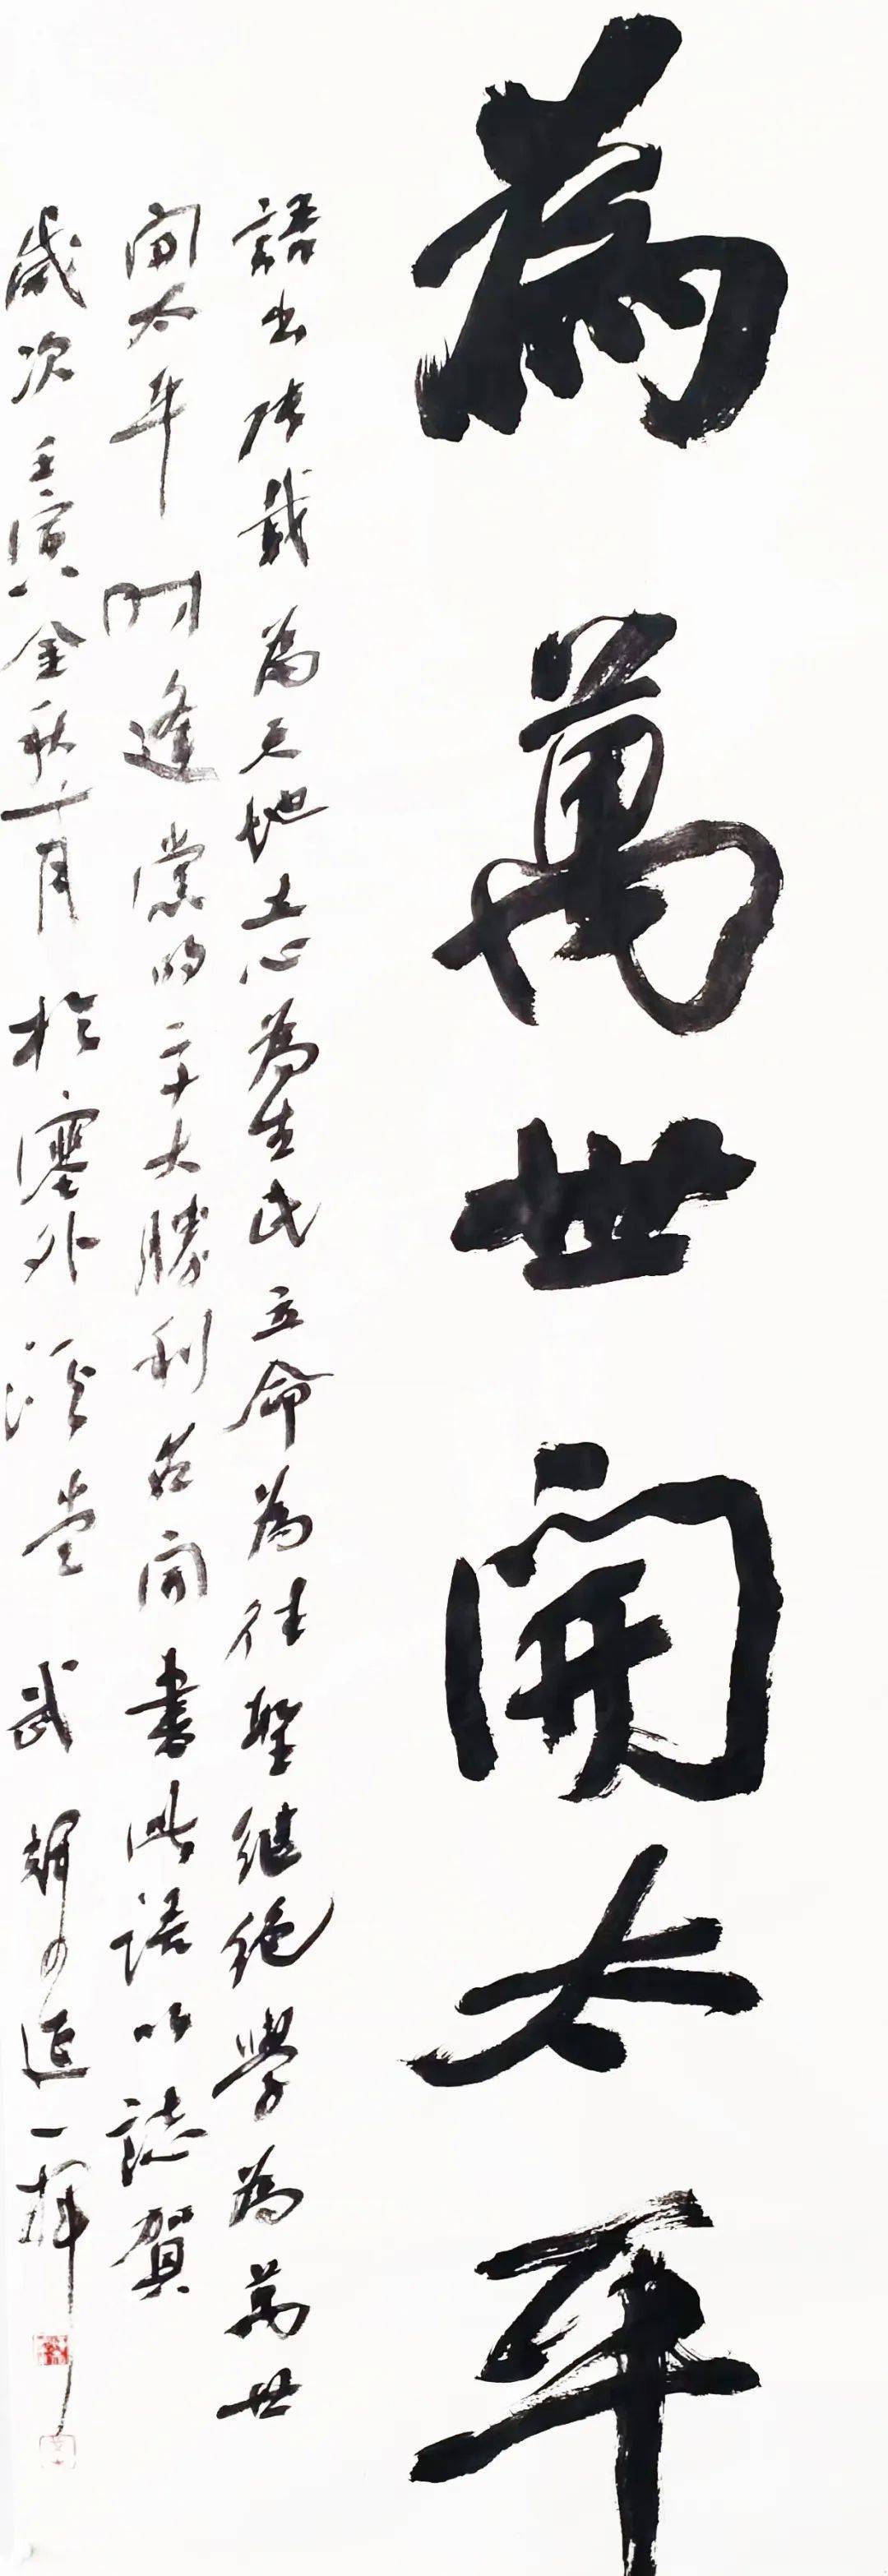 為萬世開太平
語出張載為天地立心為生民立命為往聖継絶學為萬世
開太平 時逢黨的二十大勝利召開書此語以誌賀
歲次壬寅金秋十月於塞外 堂 武 輝 延一揮